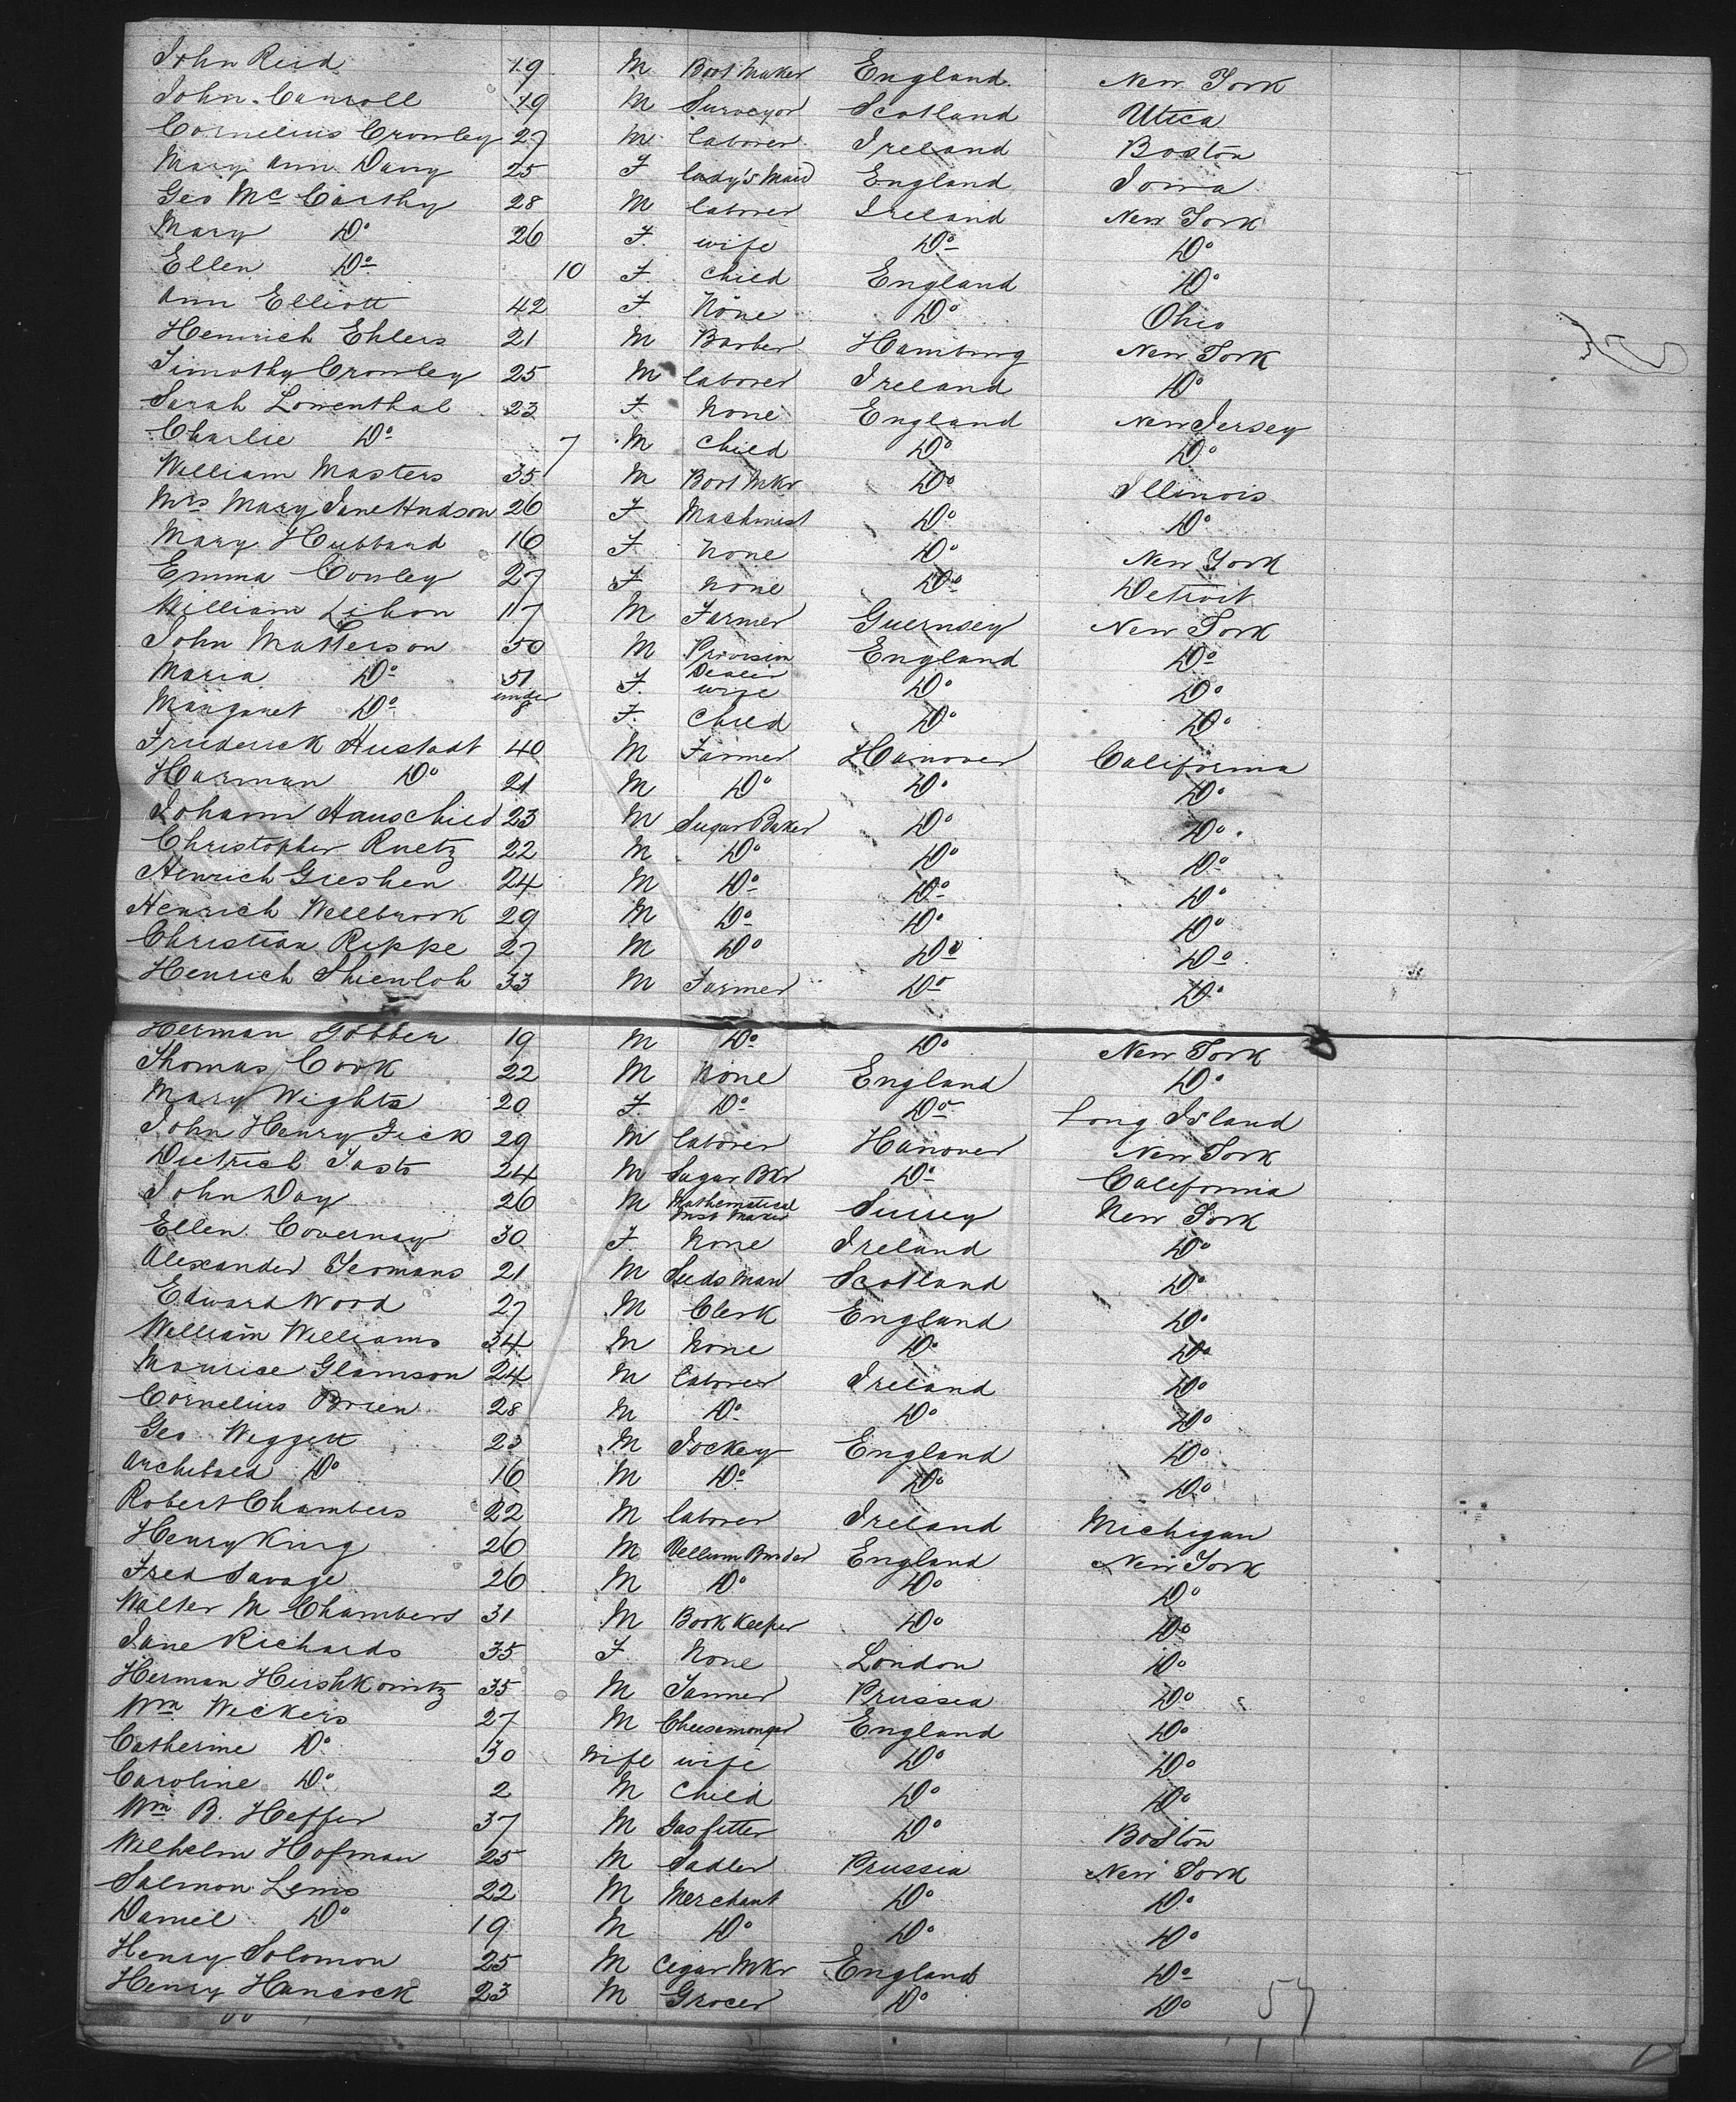 John Reid 19 M Boot Maker England New York
John Carroll 49 M Surveyor Scotland Utica
Cornelius Crowley 27 M laborer Ireland Boston
Mary Ann Davy 25 F lady's Maid England Iowa
Geo Mc Carthy 28 M laborer Ireland New York
Mary Do 26 F. wife Do Do
Ellen Do 10 F. child England Do
Ann Elliott 42 F None Do Ohio
Henrich Ehlers 21 M Barber Hamburg New York
Timothy Crowley 25 M laborer Ireland Do
Sarah Lowenthal 23 F. None England New Jersey
Charlie Do 7 M child Do Do
William Masters 35 M Boot Mkr Do Illinois
Mrs Mary Jane Hudson 26 F. Machinist Do Do
Mary Hubbard 16 F. None Do New York
Emma Conley 27 F none Do Detroit
William Lihon 17 M Farmer Guernsey New York
John Matterson 50 M Provision Dealer England Do
Maria Do 51 F. wife Do Do
Margaret Do under 8 F. child Do Do
Frederick Hustadt 40 M Farmer Hanover California
Harman Do 21 M Do Do Do
Johann Hauschied 23 M Sugar Baker Do Do
Christopher Ruetz 22 M Do Do Do
Henrich Gieshen 24 M Do Do Do
Henrich Wellbrook 29 M Do Do Do
Christian Rippe 27 M Do Do Do
Henrich Shienloh 33 M Farmer Do Do
Herman Gobber 19 M Do Do New York
Thomas Cook 22 M None England Do
Mary Wights 20 F. Do Do Long Island
John Henry Fick 29 M laborer Hanover New York
Dietrich Josts 24 M Sugar Bkr Do California
John Day 26 M Mathematical Inst Maker Surrey New York
Ellen Covernay 30 F. None Ireland Do
Alexander Yeomans 21 M Seedsman Scotland Do
Edward Wood 27 M Clerk England Do
William Williams 34 M None Do Do
Maurice Glamson 24 M laborer Ireland Do
Cornelius Brien 28 M Do Do Do
Geo Weggett 23 M Jockey England Do
Archibald Do 16 M Do Do Do
Robert Chambers 22 M laborer Ireland Michigan
Henry King 26 M Vellum Binder England New York
Fred Savage 26 M Do Do Do
Walter M Chambers 31 M Book Keeper Do Do
Jane Richards 35 F None London Do
Herman Hirshkowitz 35 M Tanner Prussia Do
Wm Wickers 27 M Cheesemonger England Do
Catherine Do 30 wife wife Do Do
Caroline Do 2 M child Do Do
Wm B. Heffer 37 M Gas fitter Do Boston
Wilhelm Hofman 25 M Sadler Prussia New York
Salmon Lewis 22 M Merchant Do Do
Daniel Do 19 M Do Do Do
Henry Solomon 25 M Cigar Mkr England Do
Henry Hancock 23 M Grocer Do Do
57